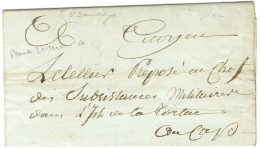 St Domingue
A
Citoyen
Letellier Preposé en Chef
des Subsistances Militaires
dans L'Isle de la Tortue
au Cap